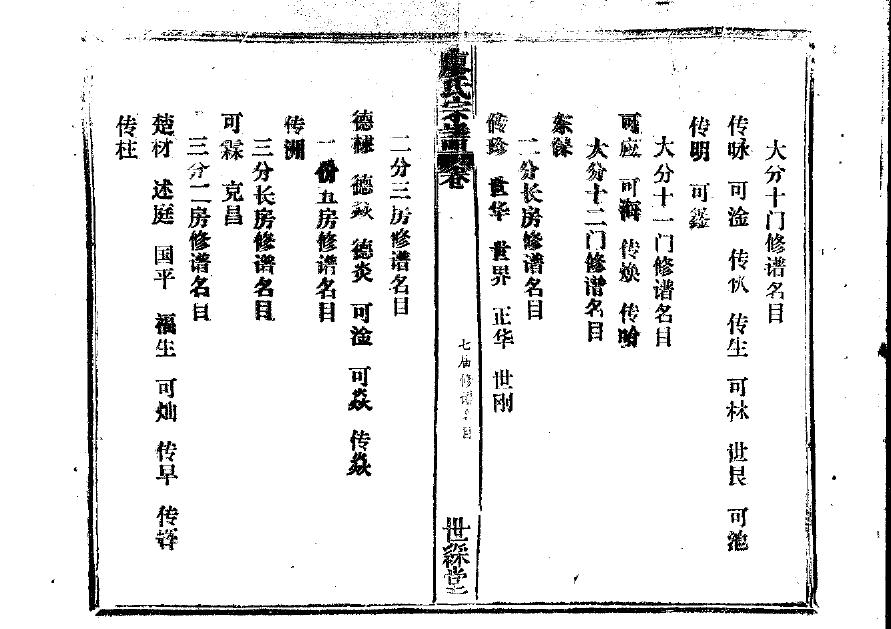 大分十门修谱名目
传咏 可淦 传伙 传生 可林 世艮 可池
传明 可鑫
大分十一门修谱名目
可应 可海 传焕 传哈
大分十二门修谱名目
东保
二分长房修谱名目
传珍 世华 世界 正华 世刚
廖氏宗譜 卷
七届修谱名目
世綵堂
二分三房修谱名目
德棣 德焱 德炎 可淦 可焱 传焱
一份五房修谱名目
传洲
三分长房修谱名目
可霖 克昌
三分二房修谱名目
楚材 述庭 国平 福生 可灿 传早 传
传柱